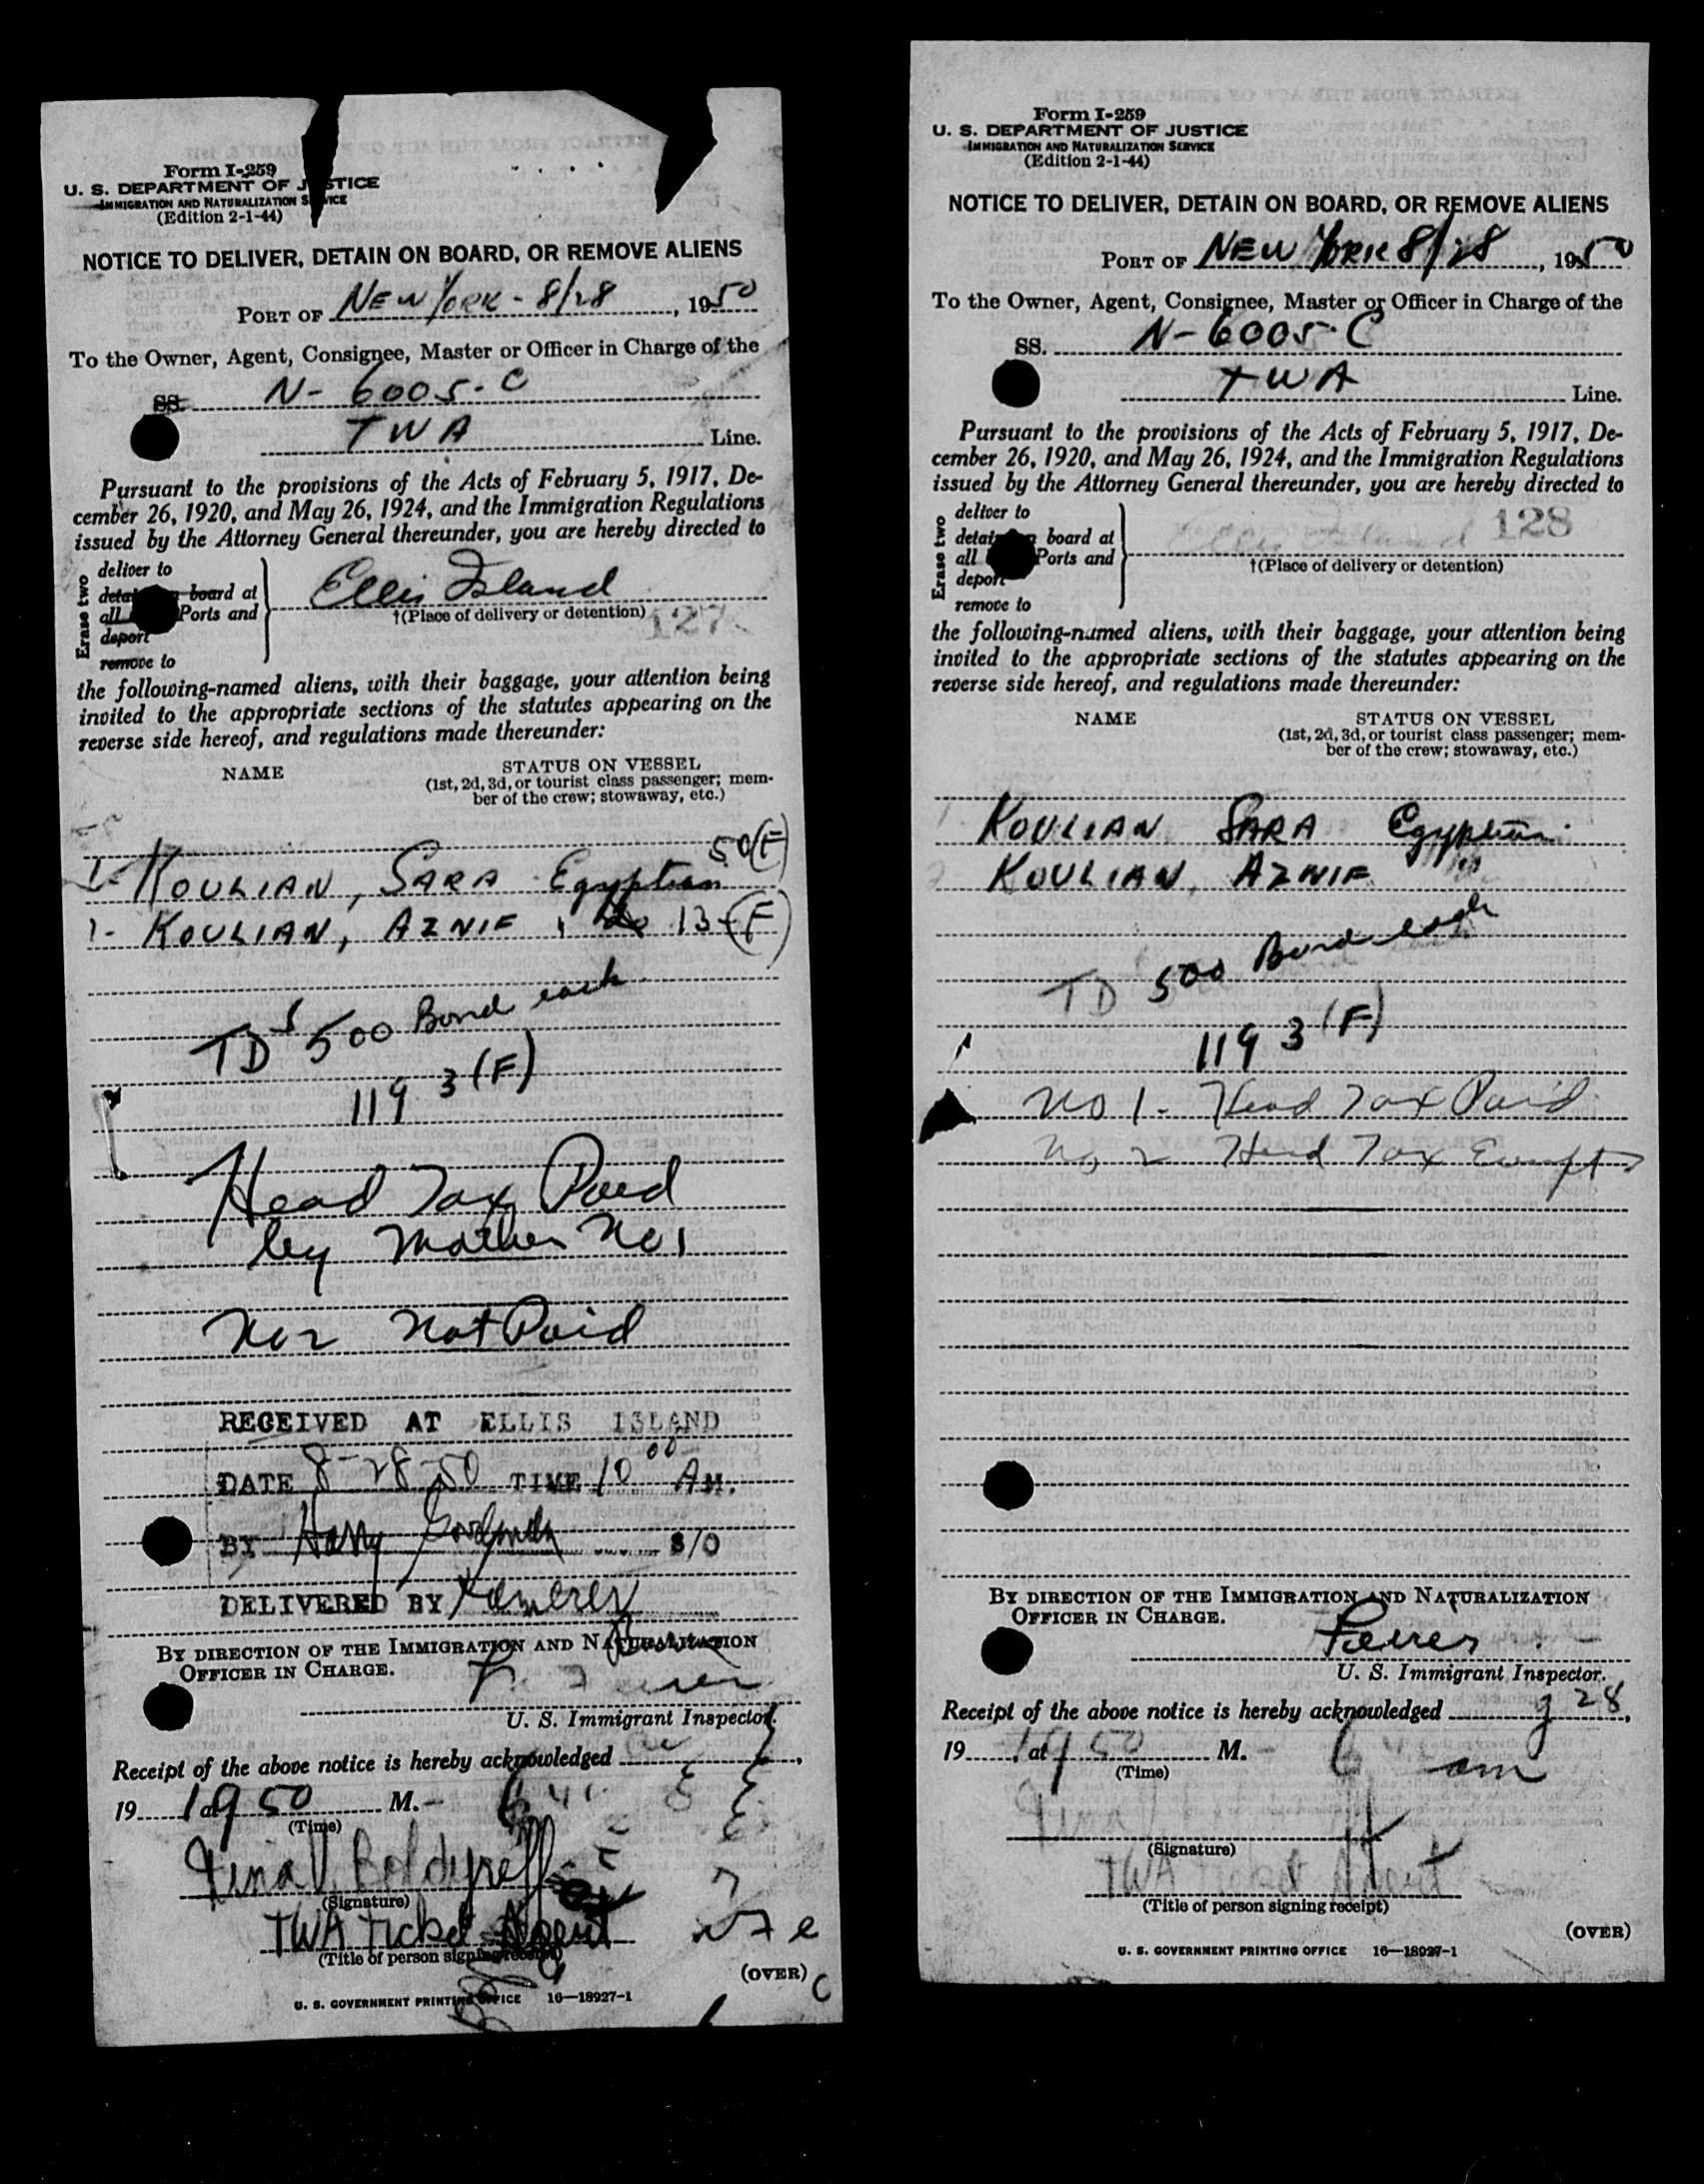 Form I-259
U. S. DEPARTMENT OF JUSTICE
IMMIGRATION AND NATURALIZATION SERVICE
(Edition 2-1-44)
NOTICE TO DELIVER, DETAIN ON BOARD, OR REMOVE ALIENS
PORT OF NEW YORK - 8/28, 1950
To the Owner, Agent, Consignee, Master or Officer in Charge of the
SS. N- 6005-C
TWA Line.
Pursuant to the provisions of the Acts of February 5, 1917, De-
cember 26, 1920, and May 26, 1924, and the Immigration Regulations
issued by the Attorney General thereunder, you are hereby directed to
Erase two
deliver to
board at
all Ports and
deport
remove to
Ellis Island
†(Place of delivery or detention) 127
the following-named aliens, with their baggage, your attention being
invited to the appropriate sections of the statutes appearing on the
reverse side hereof, and regulations made thereunder:
NAME STATUS ON VESSEL
(1st, 2d, 3d, or tourist class passenger; mem-
ber of the crew; stowaway, etc.)
50(F)
1- KOULIAN, SARA Egyptian
1- KOULIAN, AZNIF 13 (F)
TD $500 Bond each
119 3(F)
Head Tax Paid
by Mother No 1
No 2 Not Paid
RECEIVED AT ELLIS ISLAND
DATE 8-28-50 TIME 10 00 AM.
BY Harry S/O
DELIVERED BY
BY DIRECTION OF THE IMMIGRATION AND NATURALIZATION
OFFICER IN CHARGE.
U. S. Immigrant Inspector.
Receipt of the above notice is hereby acknowledged
19 1950 at M.-
(Time)
Nina V. Boldyreff
(Signature)
TWA Ticket Agent
(Title of person signing receipt)
(OVER)
U. S. GOVERNMENT PRINTING OFFICE 16—18927-1
Form I-259
U. S. DEPARTMENT OF JUSTICE
IMMIGRATION AND NATURALIZATION SERVICE
(Edition 2-1-44)
NOTICE TO DELIVER, DETAIN ON BOARD, OR REMOVE ALIENS
PORT OF NEW YORK 8/28, 1950
To the Owner, Agent, Consignee, Master or Officer in Charge of the
SS. N- 6005-C
TWA Line.
Pursuant to the provisions of the Acts of February 5, 1917, De-
cember 26, 1920, and May 26, 1924, and the Immigration Regulations
issued by the Attorney General thereunder, you are hereby directed to
Erase two
deliver to
board at
all Ports and
deport
remove to
Ellis Island 128
†(Place of delivery or detention)
the following-named aliens, with their baggage, your attention being
invited to the appropriate sections of the statutes appearing on the
reverse side hereof, and regulations made thereunder:
NAME STATUS ON VESSEL
(1st, 2d, 3d, or tourist class passenger; mem-
ber of the crew; stowaway, etc.)
KOULIAN SARA Egyptian
KOULIAN, AZNIF "
TD 500 Bond each
119 3(F)
No 1- Head Tax Paid
No 2 Head Tax Exempt
BY DIRECTION OF THE IMMIGRATION AND NATURALIZATION
OFFICER IN CHARGE.
U. S. Immigrant Inspector.
Receipt of the above notice is hereby acknowledged 28,
19 1950 at M.- am
(Time)
Nina V
(Signature)
TWA Ticket Agent
(Title of person signing receipt)
(OVER)
U. S. GOVERNMENT PRINTING OFFICE 16—18927-1